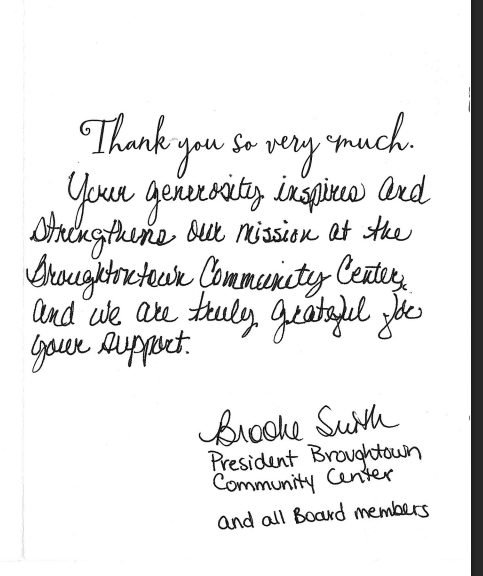 Thank you so very much.
Your generosity inspires and
strengthens our mission at the
Broughtontown Community Center,
and we are truly grateful for
your support.
Brooke Smith
President Broughtown
Community Center
and all Board members